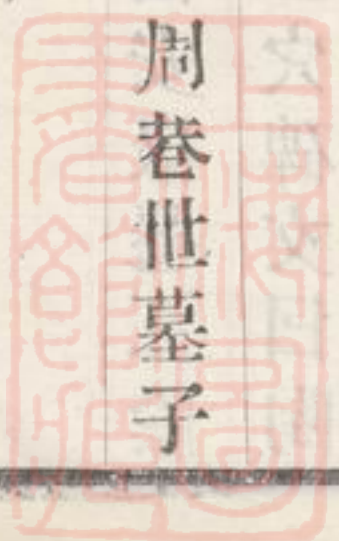 周巷世墓子